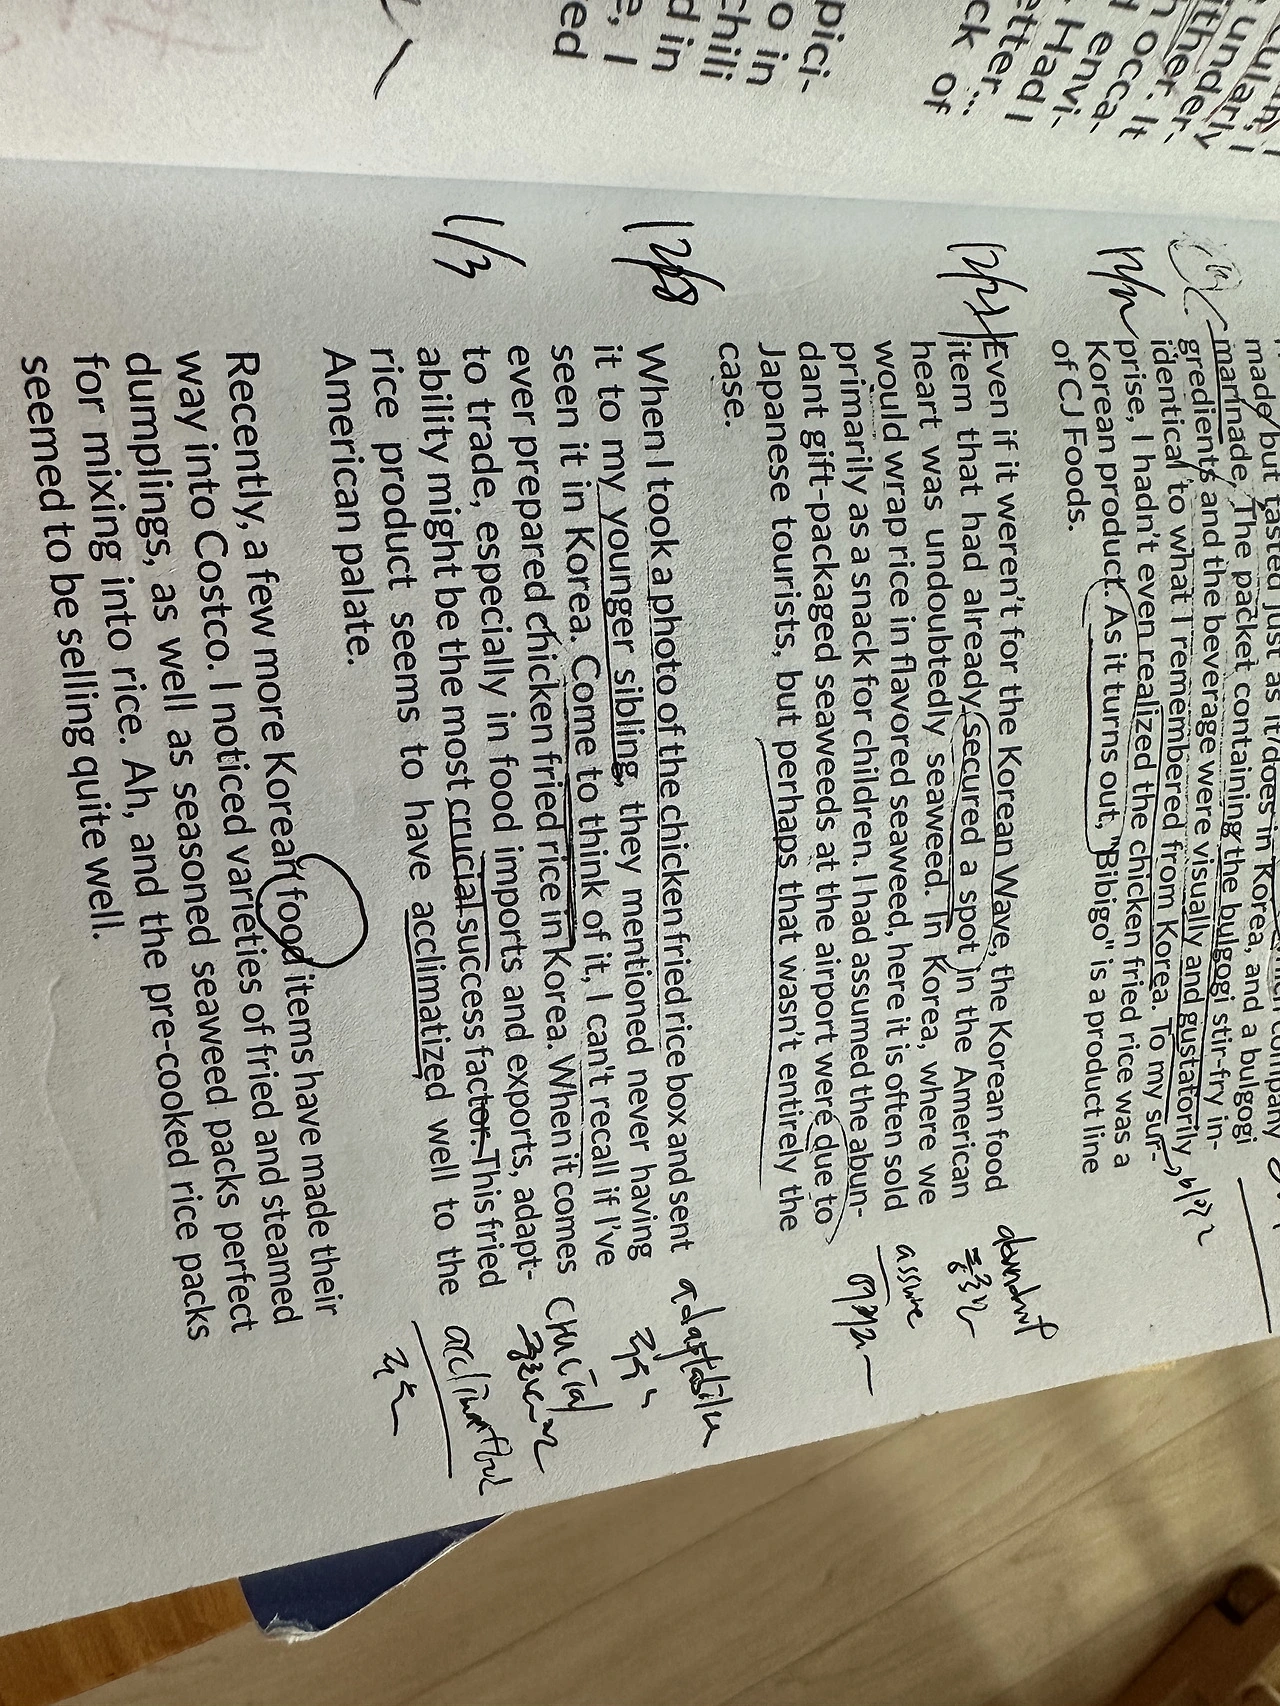 pici-
o in
chili
d in
e, I
ed
cularly, I
under-
ther. It
h occa-
l envi-
Had I
etter...
ck of
made but tasted just as it does in Korea, and a bulgogi
marinade. The packet containing the bulgogi stir-fry in-
gredients and the beverage were visually and gustatorily
identical to what I remembered from Korea. To my sur-
prise, I hadn't even realized the chicken fried rice was a
Korean product. As it turns out, "Bibigo" is a product line
of CJ Foods.
Even if it weren't for the Korean Wave, the Korean food
item that had already secured a spot in the American
heart was undoubtedly seaweed. In Korea, where we
would wrap rice in flavored seaweed, here it is often sold
primarily as a snack for children. I had assumed the abun-
dant gift-packaged seaweeds at the airport were due to
Japanese tourists, but perhaps that wasn't entirely the
case.
assume
12/28
When I took a photo of the chicken fried rice box and sent
it to my younger sibling, they mentioned never having
seen it in Korea. Come to think of it, I can't recall if I've
ever prepared chicken fried rice in Korea. When it comes
to trade, especially in food imports and exports, adapt-
ability might be the most crucial success factor. This fried
rice product seems to have acclimatized well to the
American palate.
crucial
1/3
Recently, a few more Korean food items have made their
way into Costco. I noticed varieties of fried and steamed
dumplings, as well as seasoned seaweed packs perfect
for mixing into rice. Ah, and the pre-cooked rice packs
seemed to be selling quite well.